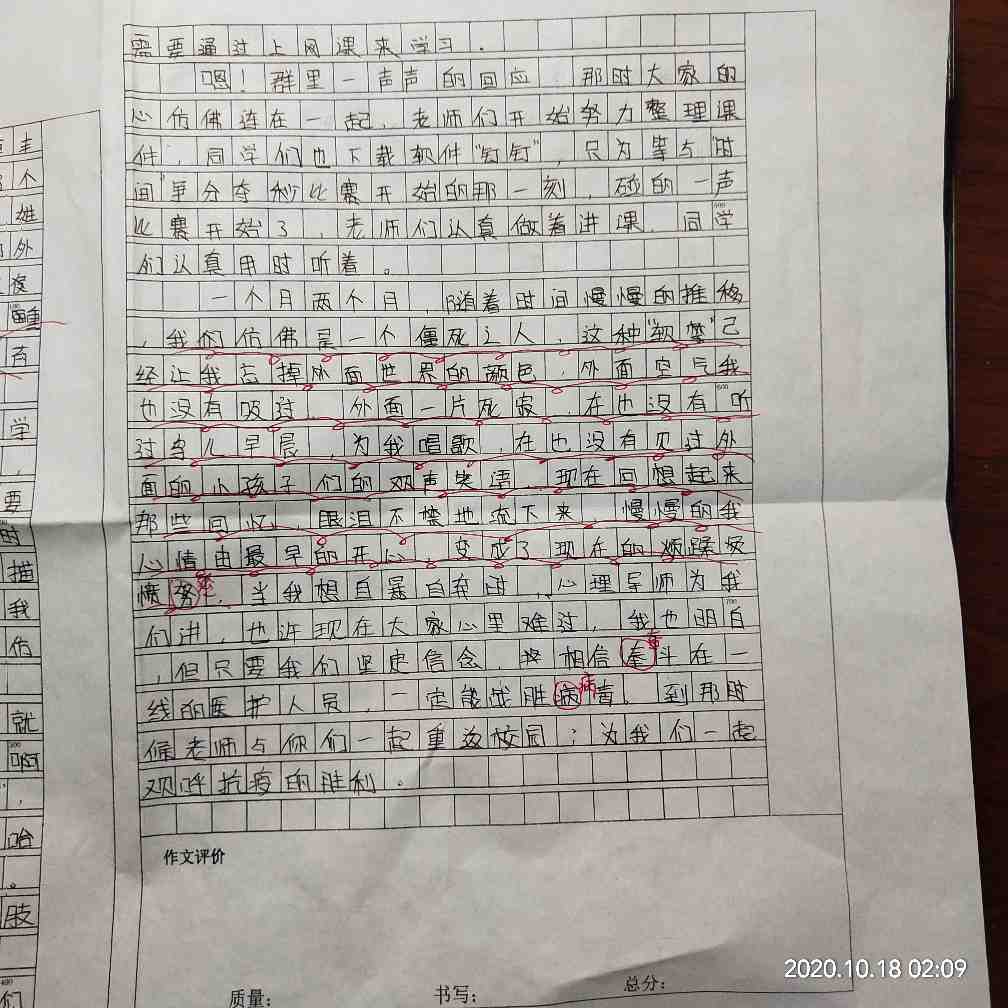 需要通过上网课来学习.
嗯!群里一声声的回应,那时大家的
心仿佛连在一起,老师们开始努力整理课
件,同学们也下载软件“钉钉”,只为等与“时
间”争分夺秒比赛开始的那一刻,砰的一声
比赛开始了,老师们认真做着讲课,同学
们认真用时听着。
一个月两个月,随着时间慢慢的推移
,我们仿佛是一个僵死之人,这种“软禁”已
经让我忘掉外面世界的颜色,外面空气我
也没有吸过,外面一片死寂,在也没有听
过鸟儿早晨,为我唱歌,在也没有见过外
面的小孩子们的欢声笑语,现在回想起来
那些回忆,眼泪不禁地流下来,慢慢的我
心情由最早的开心,变成了现在的烦躁
愤努,当我想自暴自弃时,心理导师为我
们讲,也许现在大家心里难过,我也明白
,但只要我们坚定信念,相信奋斗在一
线的医护人员,一定能战胜病毒,到那时
候老师与你们一起重返校园;为我们一起
欢呼抗疫的胜利。
圭
个
姓
外
有
学
,
要
时
描
我
伤
就
啊
,
哈
。
肢
们
作文评价
质量:
书写:
总分:
2020.10.18 02:09